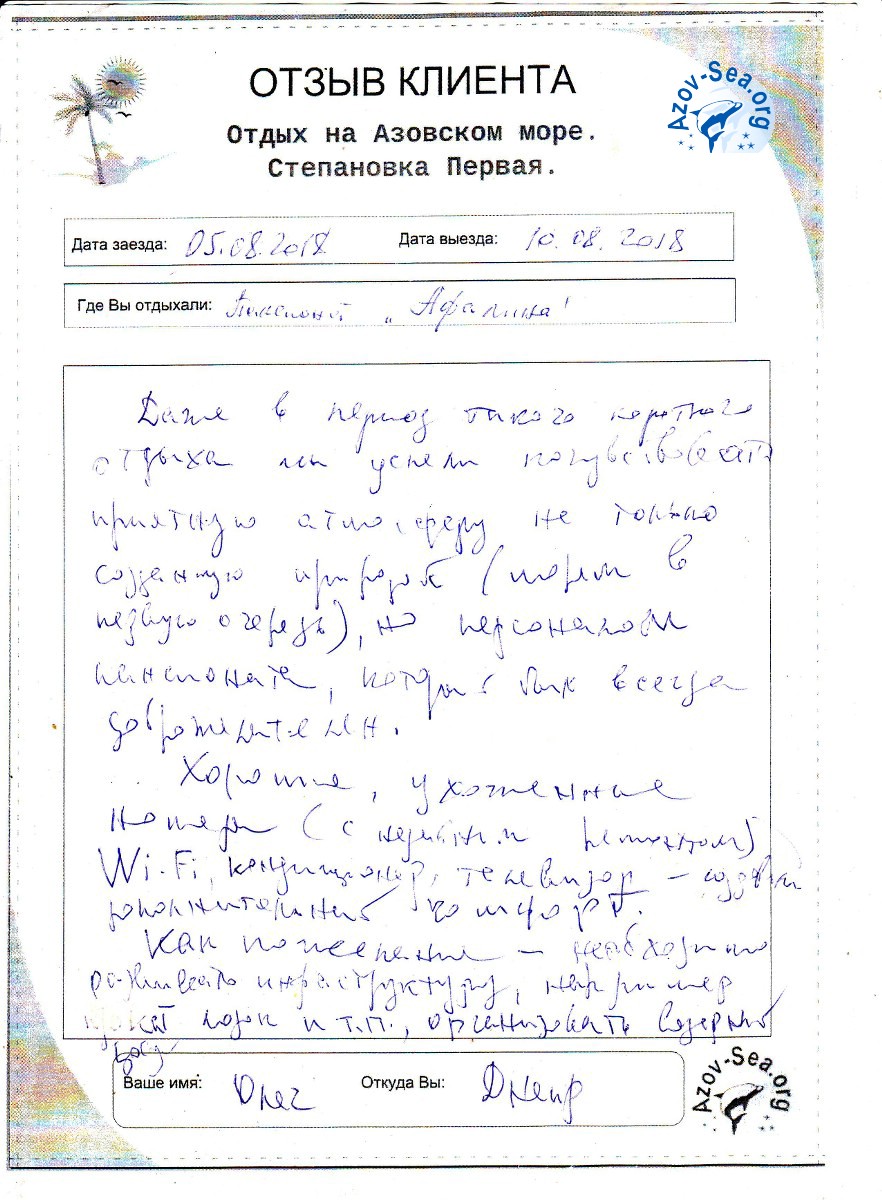 ОТЗЫВ КЛИЕНТА
Azov-Sea.org
Отдых на Азовском море.
Степановка Первая.
Дата заезда: 05.08.2018 Дата выезда: 10.08.2018
Где Вы отдыхали: Пансионат "Афалина"
Даже в период такого короткого
отдыха мы успели почувствовать
приятную атмосферу не только
созданную природой (морем в
первую очередь), но персоналом
пансионата, который был всегда
доброжелателен.
Хорошие, ухоженные
номера (с недавним ремонтом)
Wi-Fi, кондиционер, телевизор -
дополнительный комфорт.
Как пожелание - необходимо
развивать инфраструктуру, например
прокат лодок и т.п., организовать
Ваше имя: Олег Откуда Вы: Днепр
Azov-Sea.org